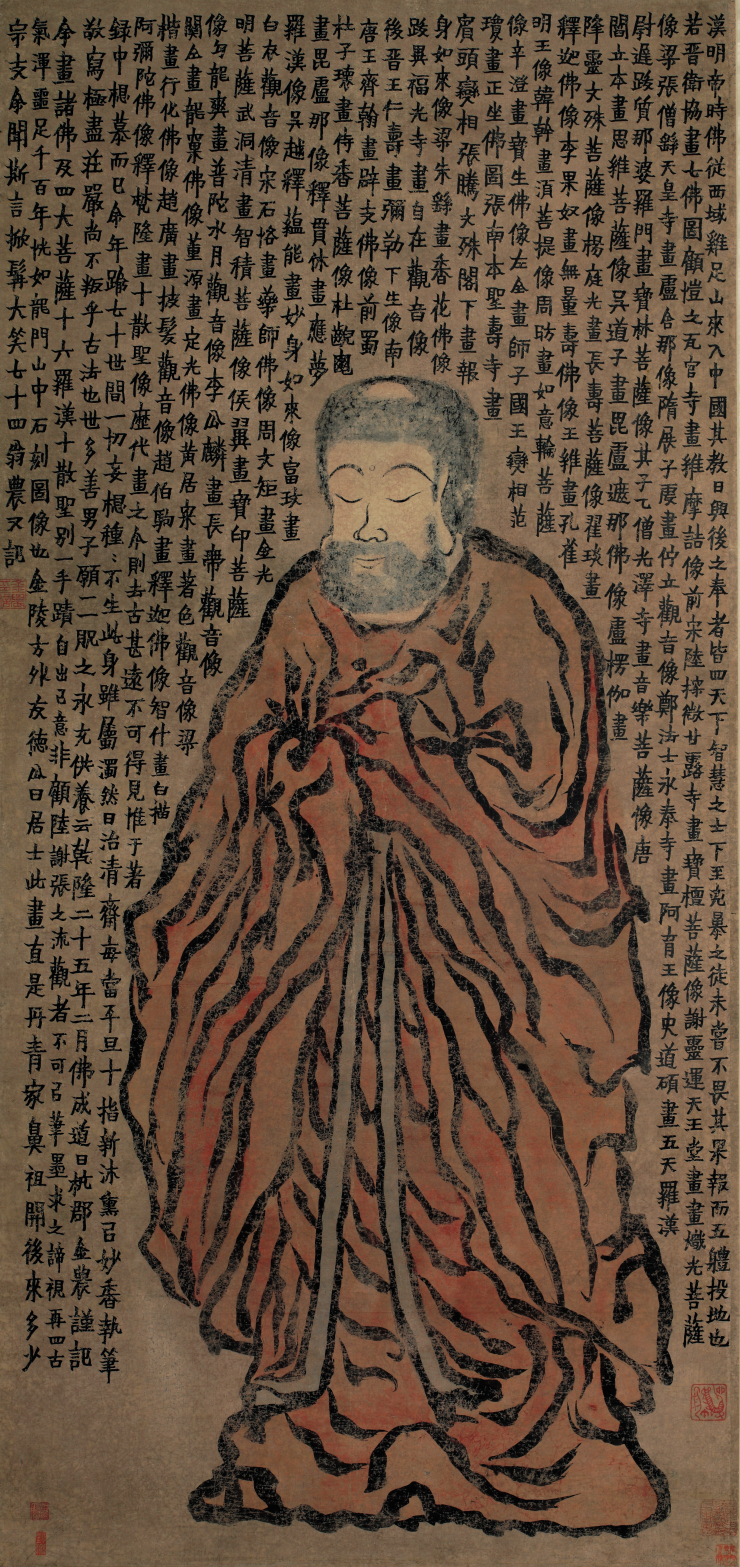 漢明帝時佛從西域雞足山來入中國其教日興後之奉者皆四天下智慧之士下至兇暴之徒未嘗不畏其果報而五體投地也
若晉衛協畫七佛圖顧愷之瓦官寺畫維摩詰像前宋陸探微甘露寺畫寶檀菩薩像謝靈運天王堂畫畫熾光菩薩
像梁張僧繇天皇寺畫盧舍那像隋展子虔畫佇立觀音像鄭法士永泰寺畫阿育王像史道碩畫五天羅漢
尉遲跋質那婆羅門畫寶林菩薩像其子乙僧光澤寺畫音樂菩薩像唐
閻立本畫思維菩薩像吳道子畫毘盧遮那佛像盧楞伽畫
降靈文殊菩薩像楊庭光畫長壽菩薩像翟琰畫
釋迦佛像李果奴畫無量壽佛像王維畫孔雀
明王像韓幹畫須菩提像周昉畫如意輪菩薩
像辛澄畫寶生佛像左全畫師子國王變相范
瓊畫正坐佛圖張南本聖壽寺畫
賓頭變相張騰文殊閣下畫報
身如來像梁朱繇畫香花佛像
跋異福光寺畫自在觀音像
後晉王仁壽畫彌勒下生像南
唐王齊翰畫辟支佛像前蜀
杜子瓌畫侍香菩薩像杜齯龜
畫毘盧那像釋貫休畫應夢
羅漢像吳越釋蘊能畫妙身如來像富玫畫
白衣觀音像宋石恪畫藥師佛像周文矩畫金光
明菩薩武洞清畫智積菩薩像侯翼畫寶印菩薩
像勾龍爽畫普陀水月觀音像李公麟畫長帶觀音像
關仝畫龍窠佛像董源畫定光佛像黃居寀畫著色觀音像梁
楷畫行化佛像趙廣畫披髮觀音像趙伯駒畫釋迦佛像智什畫白描
阿彌陀佛像釋梵隆畫十散聖像歷代畫之今則去古甚遠不可得見惟于著
錄中想慕而已今年踰七十世間一切妄想種〻不生此身雖屬濁然日治清齋每當平旦十指新沐熏以妙香執筆
敬寫極盡莊嚴尚不叛乎古法也世多善男子願二貺之永充供養云乾隆二十五年二月佛成道日杭郡金農謹記
余畫諸佛及四大菩薩十六羅漢十散聖別一手蹟自出己意非顧陸謝張之流觀者不可以筆墨求之諦視再四古
氣渾噩足千百年恍如龍門山中石刻圖像也金陵方外友德公曰居士此畫直是丹青家鼻祖開後來多少
宗支余聞斯言掀髯大笑七十四翁農又記